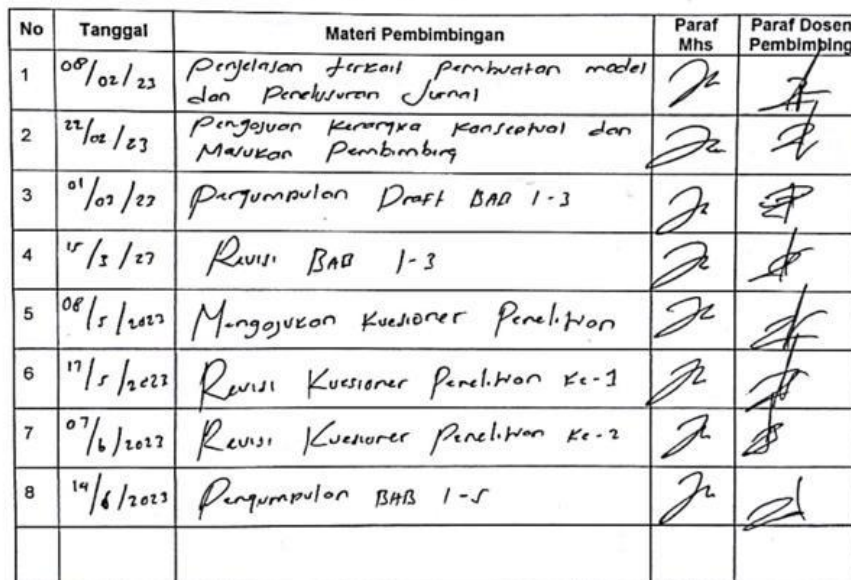 No Tanggal Materi Pembimbingan Paraf Mhs Paraf Dosen Pembimbing
1 08/02/23 Penjelasan terkait pembuatan model
dan Penelusuran Jurnal
2 22/02/23 Pengajuan Kerangka Konseptual dan
Masukan Pembimbing
3 01/03/23 Pengumpulan Draft BAB 1-3
4 15/3/23 Revisi BAB 1-3
5 08/5/2023 Mengajukan Kuesioner Penelitian
6 17/5/2023 Revisi Kuesioner Penelitian Ke-1
7 07/6/2023 Revisi Kuesioner Penelitian Ke-2
8 14/6/2023 Pengumpulan BAB 1-5